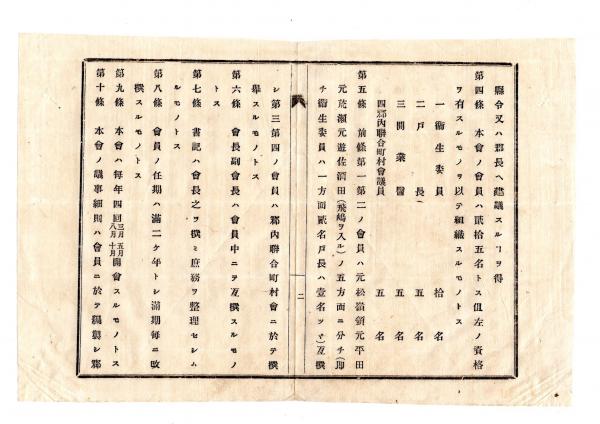 縣令又ハ郡長ヘ建議スルヿヲ得
第四條 本會ノ會員ハ貳拾五名トス但左ノ資格
ヲ有スルモノヲ以テ組織スルモノトス
一衛生委員 拾名
二戸長 五名
三開業醫 五名
四郡內聯合町村會議員 五名
第五條 前條第一第二ノ會員ハ元松嶺領元平田
元荒瀬元遊佐酒田(飛嶋ヲ入ル)ノ五方面ニ分チ(即
チ衛生委員ハ一方面貳名戸長ハ壹名ヅヽ)互撰
二
シ第三第四ノ會員ハ郡內聯合町村會ニ於テ撰
擧スルモノトス
第六條 會長副會長ハ會員中ニテ互撰スルモノ
トス
第七條 書記ハ會長之ヲ撰ミ庶務ヲ整理セシム
ルモノトス
第八條 會員ノ任期ハ滿二ケ年トシ滿期每ニ改
撰スルモノトス
第九條 本會ハ每年四回三月五月八月十月開會スルモノトス
第十條 本會ノ議事細則ハ會員ニ於テ編製シ郡